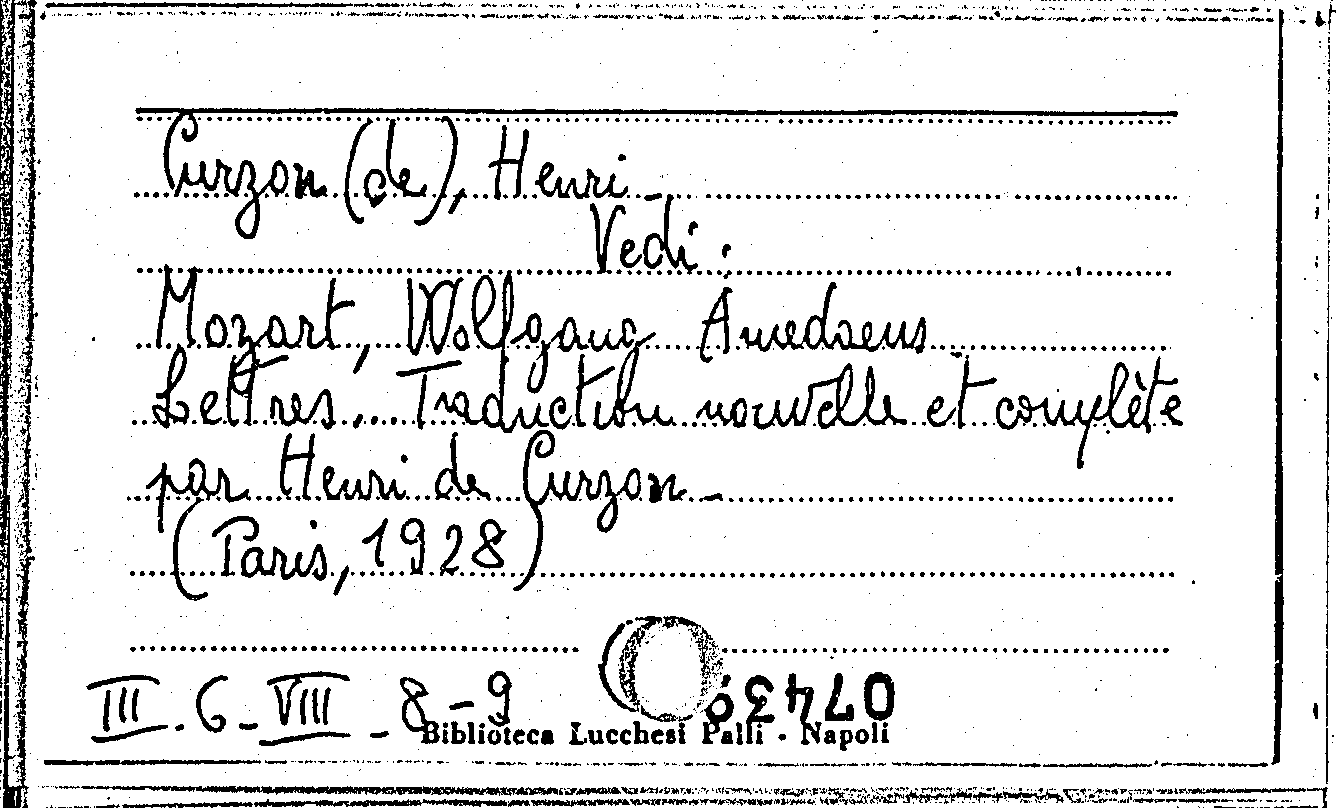 Curzon (de), Henri -
Vedi :
Mozart, Wolfgang Amedaeus
Lettres... Traduction nouvelle et complète
par Henri de Curzon -
(Paris, 1928)
III. 6 - VIII - 8 - 9
Biblioteca Lucchesi Palli - Napoli